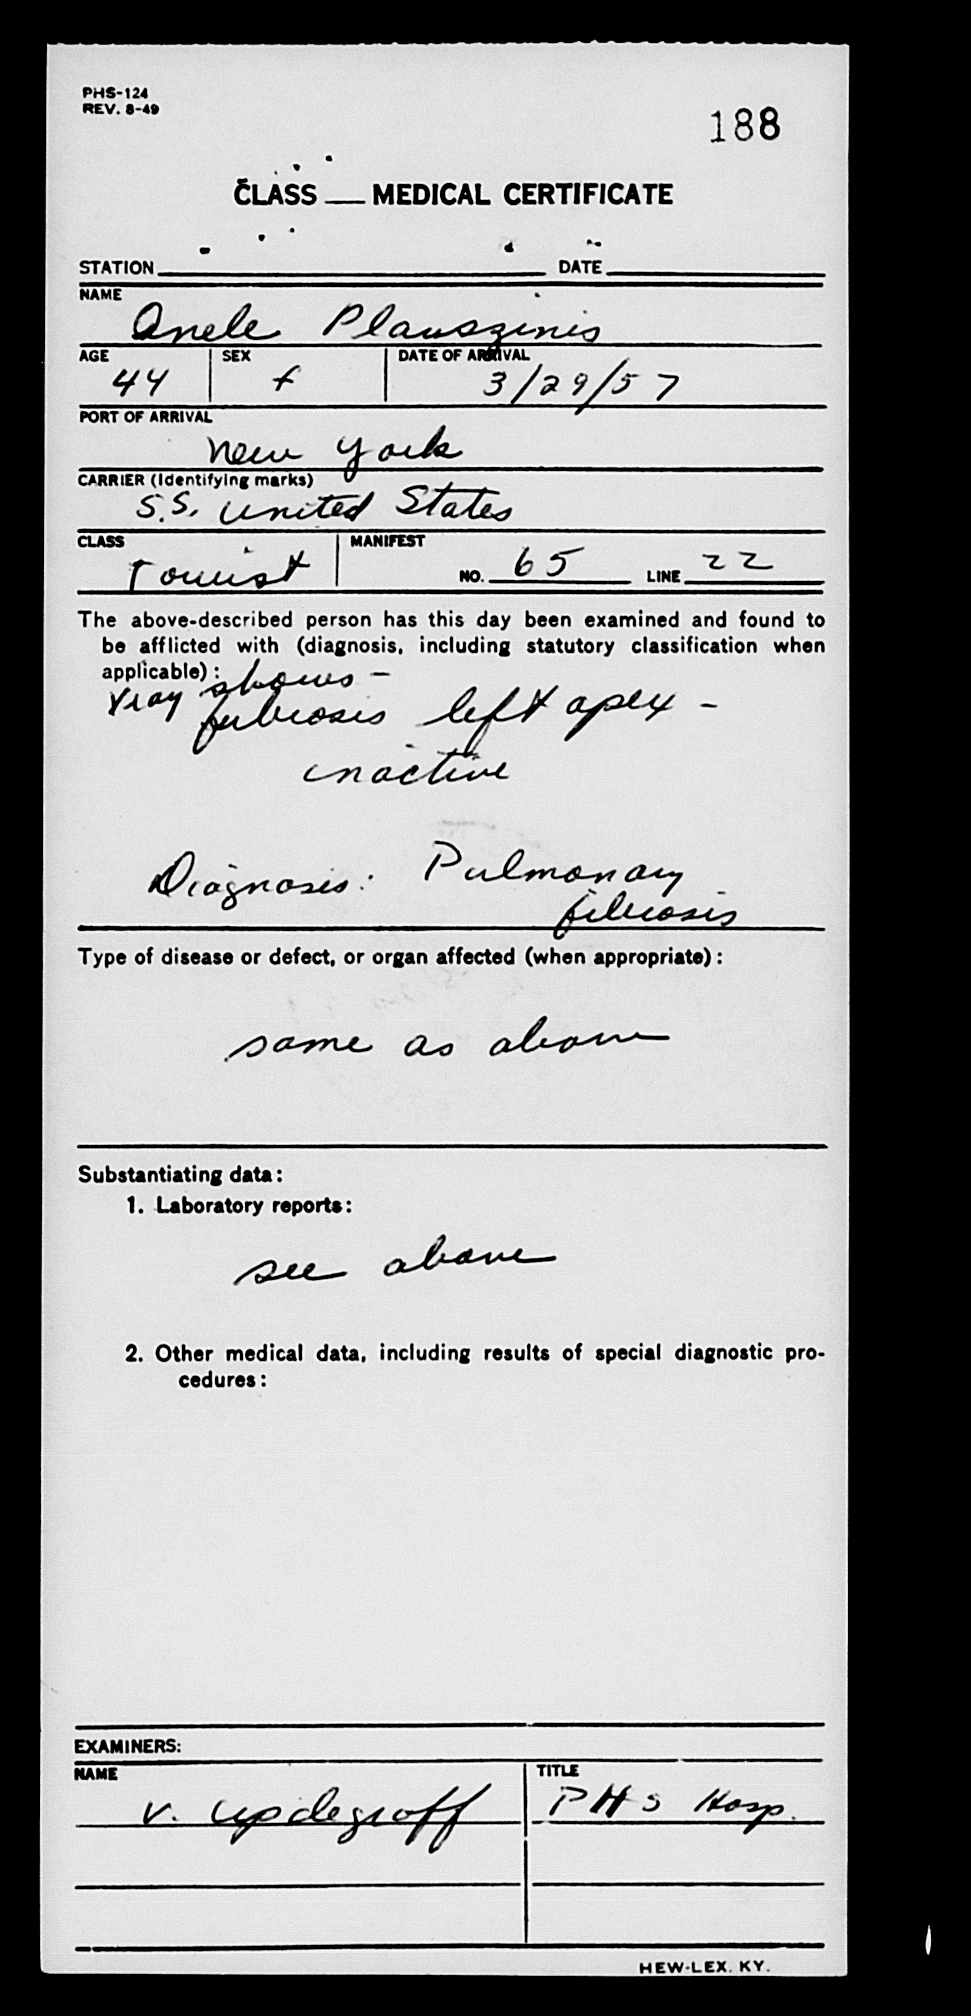 PHS-124
REV. 8-49
188
CLASS __ MEDICAL CERTIFICATE
STATION DATE
NAME
Anele Plauszinis
AGE SEX DATE OF ARRIVAL
44 f 3/29/57
PORT OF ARRIVAL
New York
CARRIER (Identifying marks)
S.S. United States
CLASS MANIFEST
Tourist NO. 65 LINE 22
The above-described person has this day been examined and found to
be afflicted with (diagnosis, including statutory classification when
applicable):
Xray shows -
fibrosis left apex -
inactive
Diagnosis: Pulmonary
fibrosis
Type of disease or defect, or organ affected (when appropriate):
same as above
Substantiating data:
1. Laboratory reports:
see above
2. Other medical data, including results of special diagnostic pro-
cedures:
EXAMINERS:
NAME TITLE
V. Updegroff PHS Hosp.
HEW-LEX. KY.